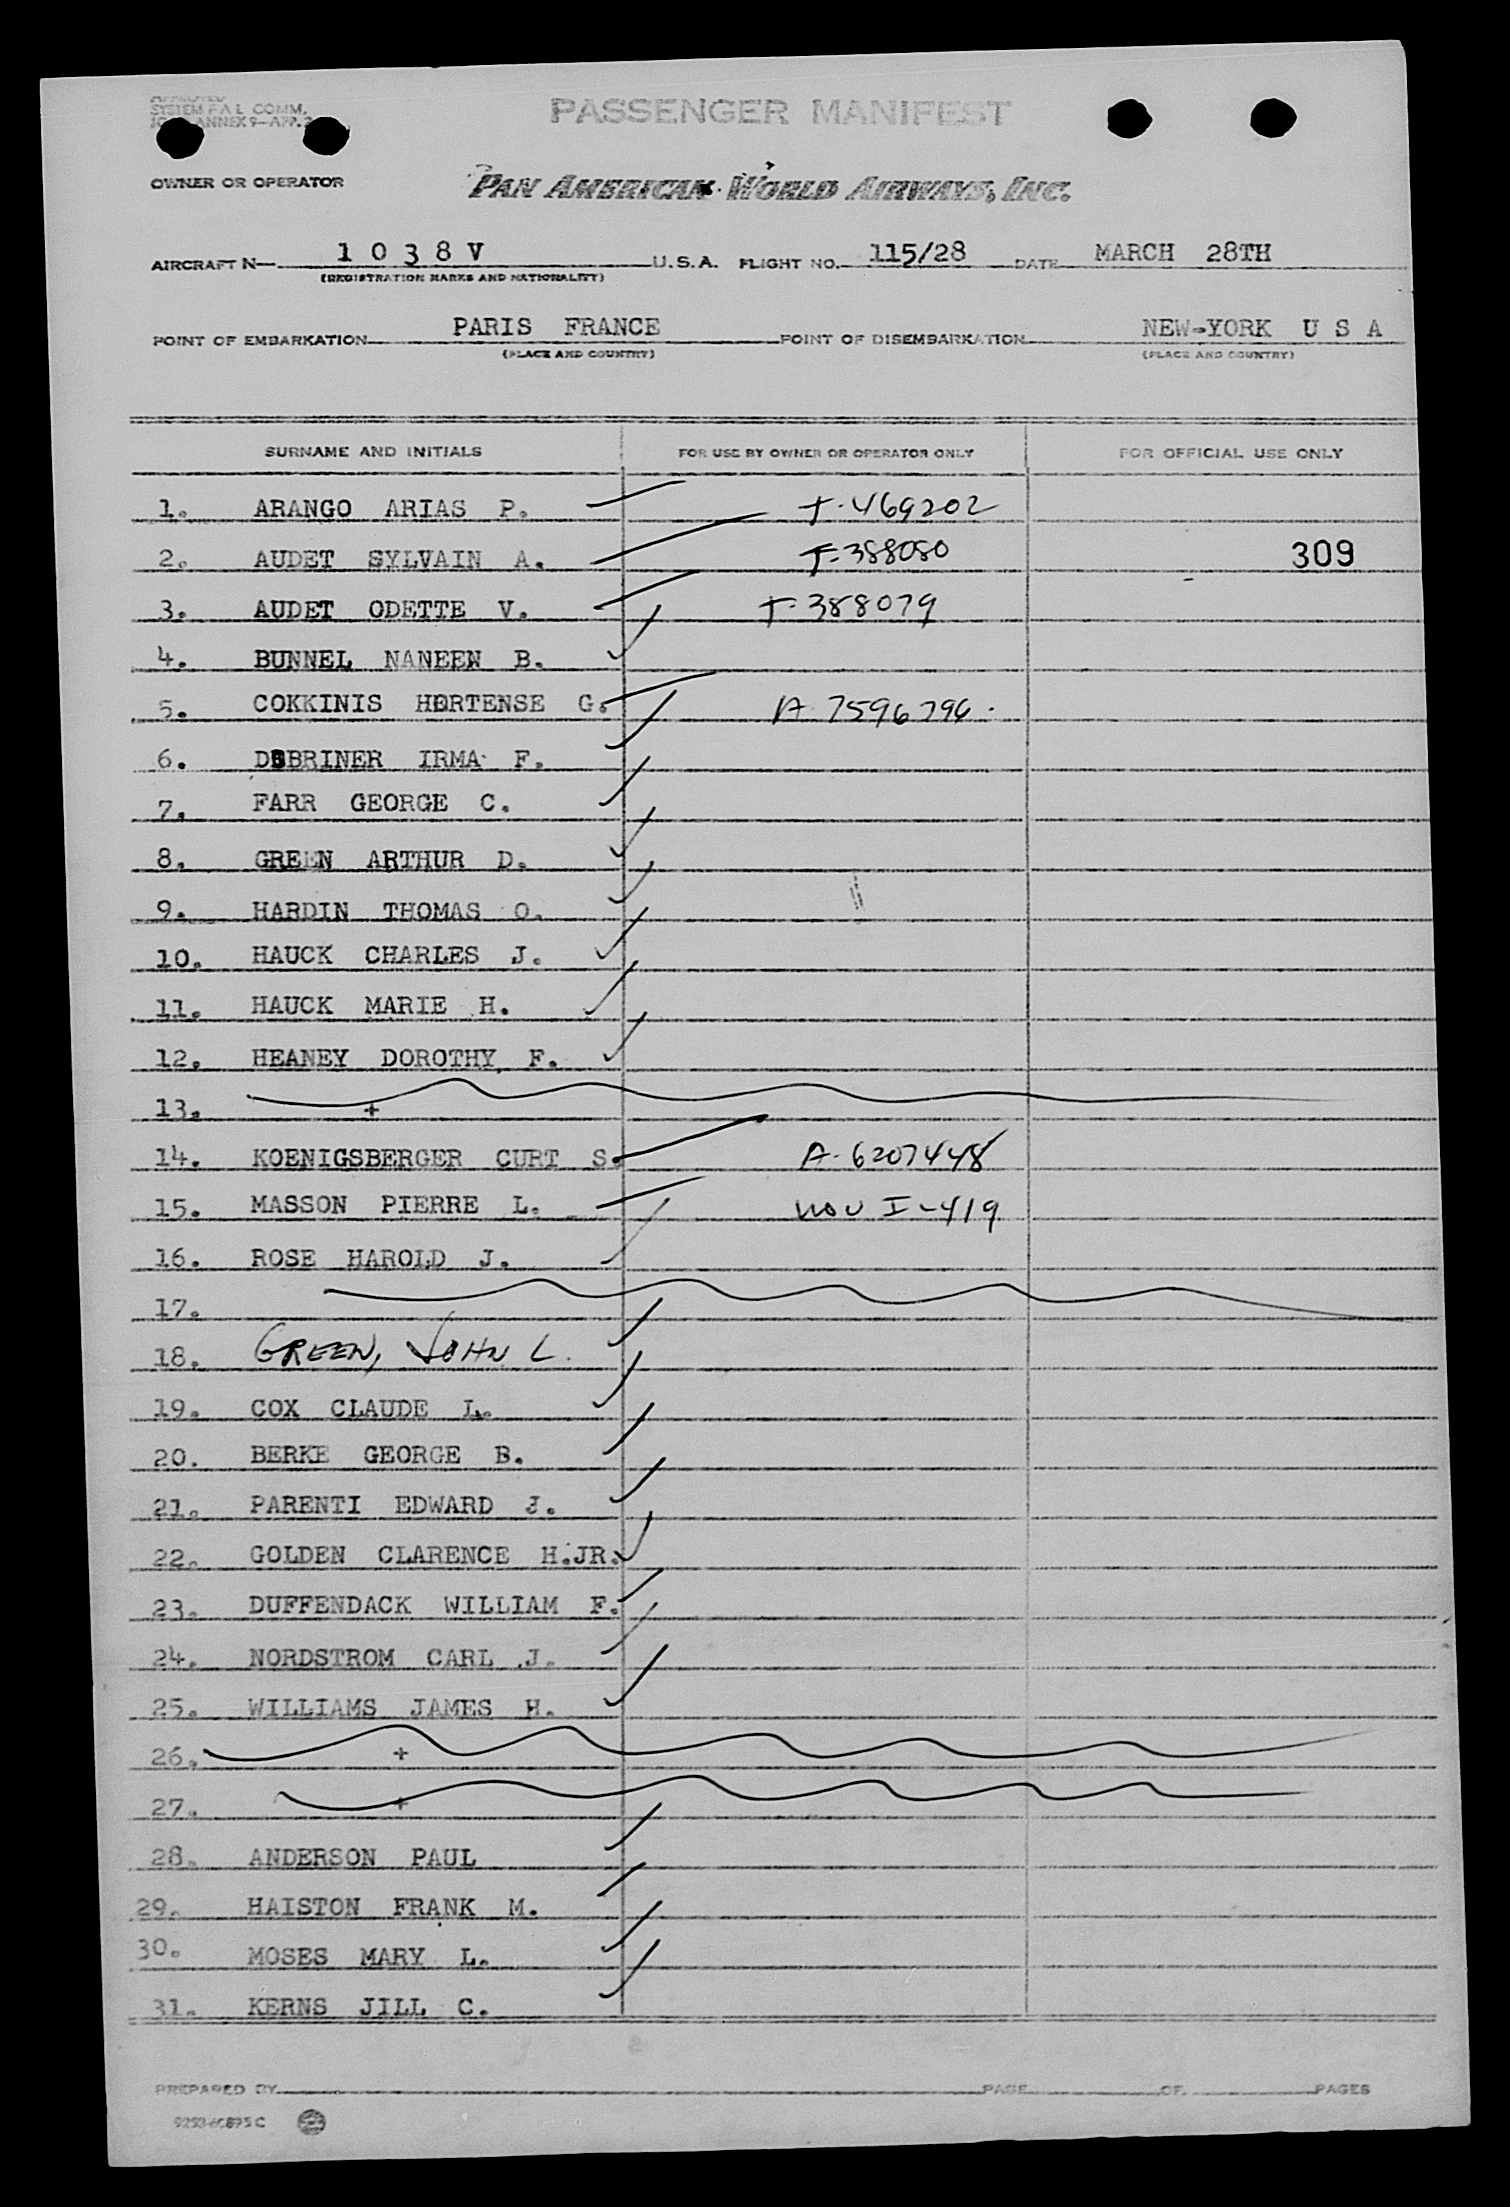 APPROVED
SYSTEM F.A.L. COMM.
ANNEX 9—APP. 3
PASSENGER MANIFEST
OWNER OR OPERATOR PAN AMERICAN WORLD AIRWAYS, INC.
AIRCRAFT N— 1 0 3 8 V U.S.A. FLIGHT NO. 115/28 DATE MARCH 28TH
(REGISTRATION MARKS AND NATIONALITY)
POINT OF EMBARKATION PARIS FRANCE POINT OF DISEMBARKATION NEW-YORK U S A
(PLACE AND COUNTRY) (PLACE AND COUNTRY)
SURNAME AND INITIALS FOR USE BY OWNER OR OPERATOR ONLY FOR OFFICIAL USE ONLY
1. ARANGO ARIAS P. T-469202
2. AUDET SYLVAIN A. T-388080 309
3. AUDET ODETTE V. T-388079
4. BUNNEL NANEEN B.
5. COKKINIS HORTENSE G. A 7596796
6. DEBRINER IRMA F.
7. FARR GEORGE C.
8. GREEN ARTHUR D.
9. HARDIN THOMAS O.
10. HAUCK CHARLES J.
11. HAUCK MARIE H.
12. HEANEY DOROTHY F.
13. +
14. KOENIGSBERGER CURT S. A-6207448
15. MASSON PIERRE L. NOV I-419
16. ROSE HAROLD J.
17.
18. GREEN, JOHN L.
19. COX CLAUDE L.
20. BERKE GEORGE B.
21. PARENTI EDWARD J.
22. GOLDEN CLARENCE H.JR.
23. DUFFENDACK WILLIAM F.
24. NORDSTROM CARL J.
25. WILLIAMS JAMES H.
26. +
27. +
28. ANDERSON PAUL
29. HAISTON FRANK M.
30. MOSES MARY L.
31. KERNS JILL C.
PREPARED BY PAGE OF PAGES